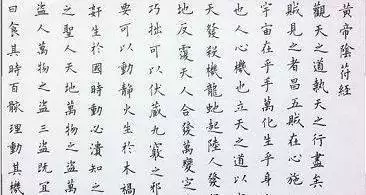 黄帝陰符經
觀天之道執天之行盡
賊見之者昌五賊在心施
宇宙在乎手萬化生乎身
也人心機也立天之道以
天發殺機龍蛇起陸人發
地反覆天人合發萬變定
巧拙可以伏藏九竅之邪
要可以動靜火生於木禍
奸生於國時動必潰知之
之聖人天地萬物之盜萬
盜人萬物之盜三盜既宜
曰食其時百骸理動其機